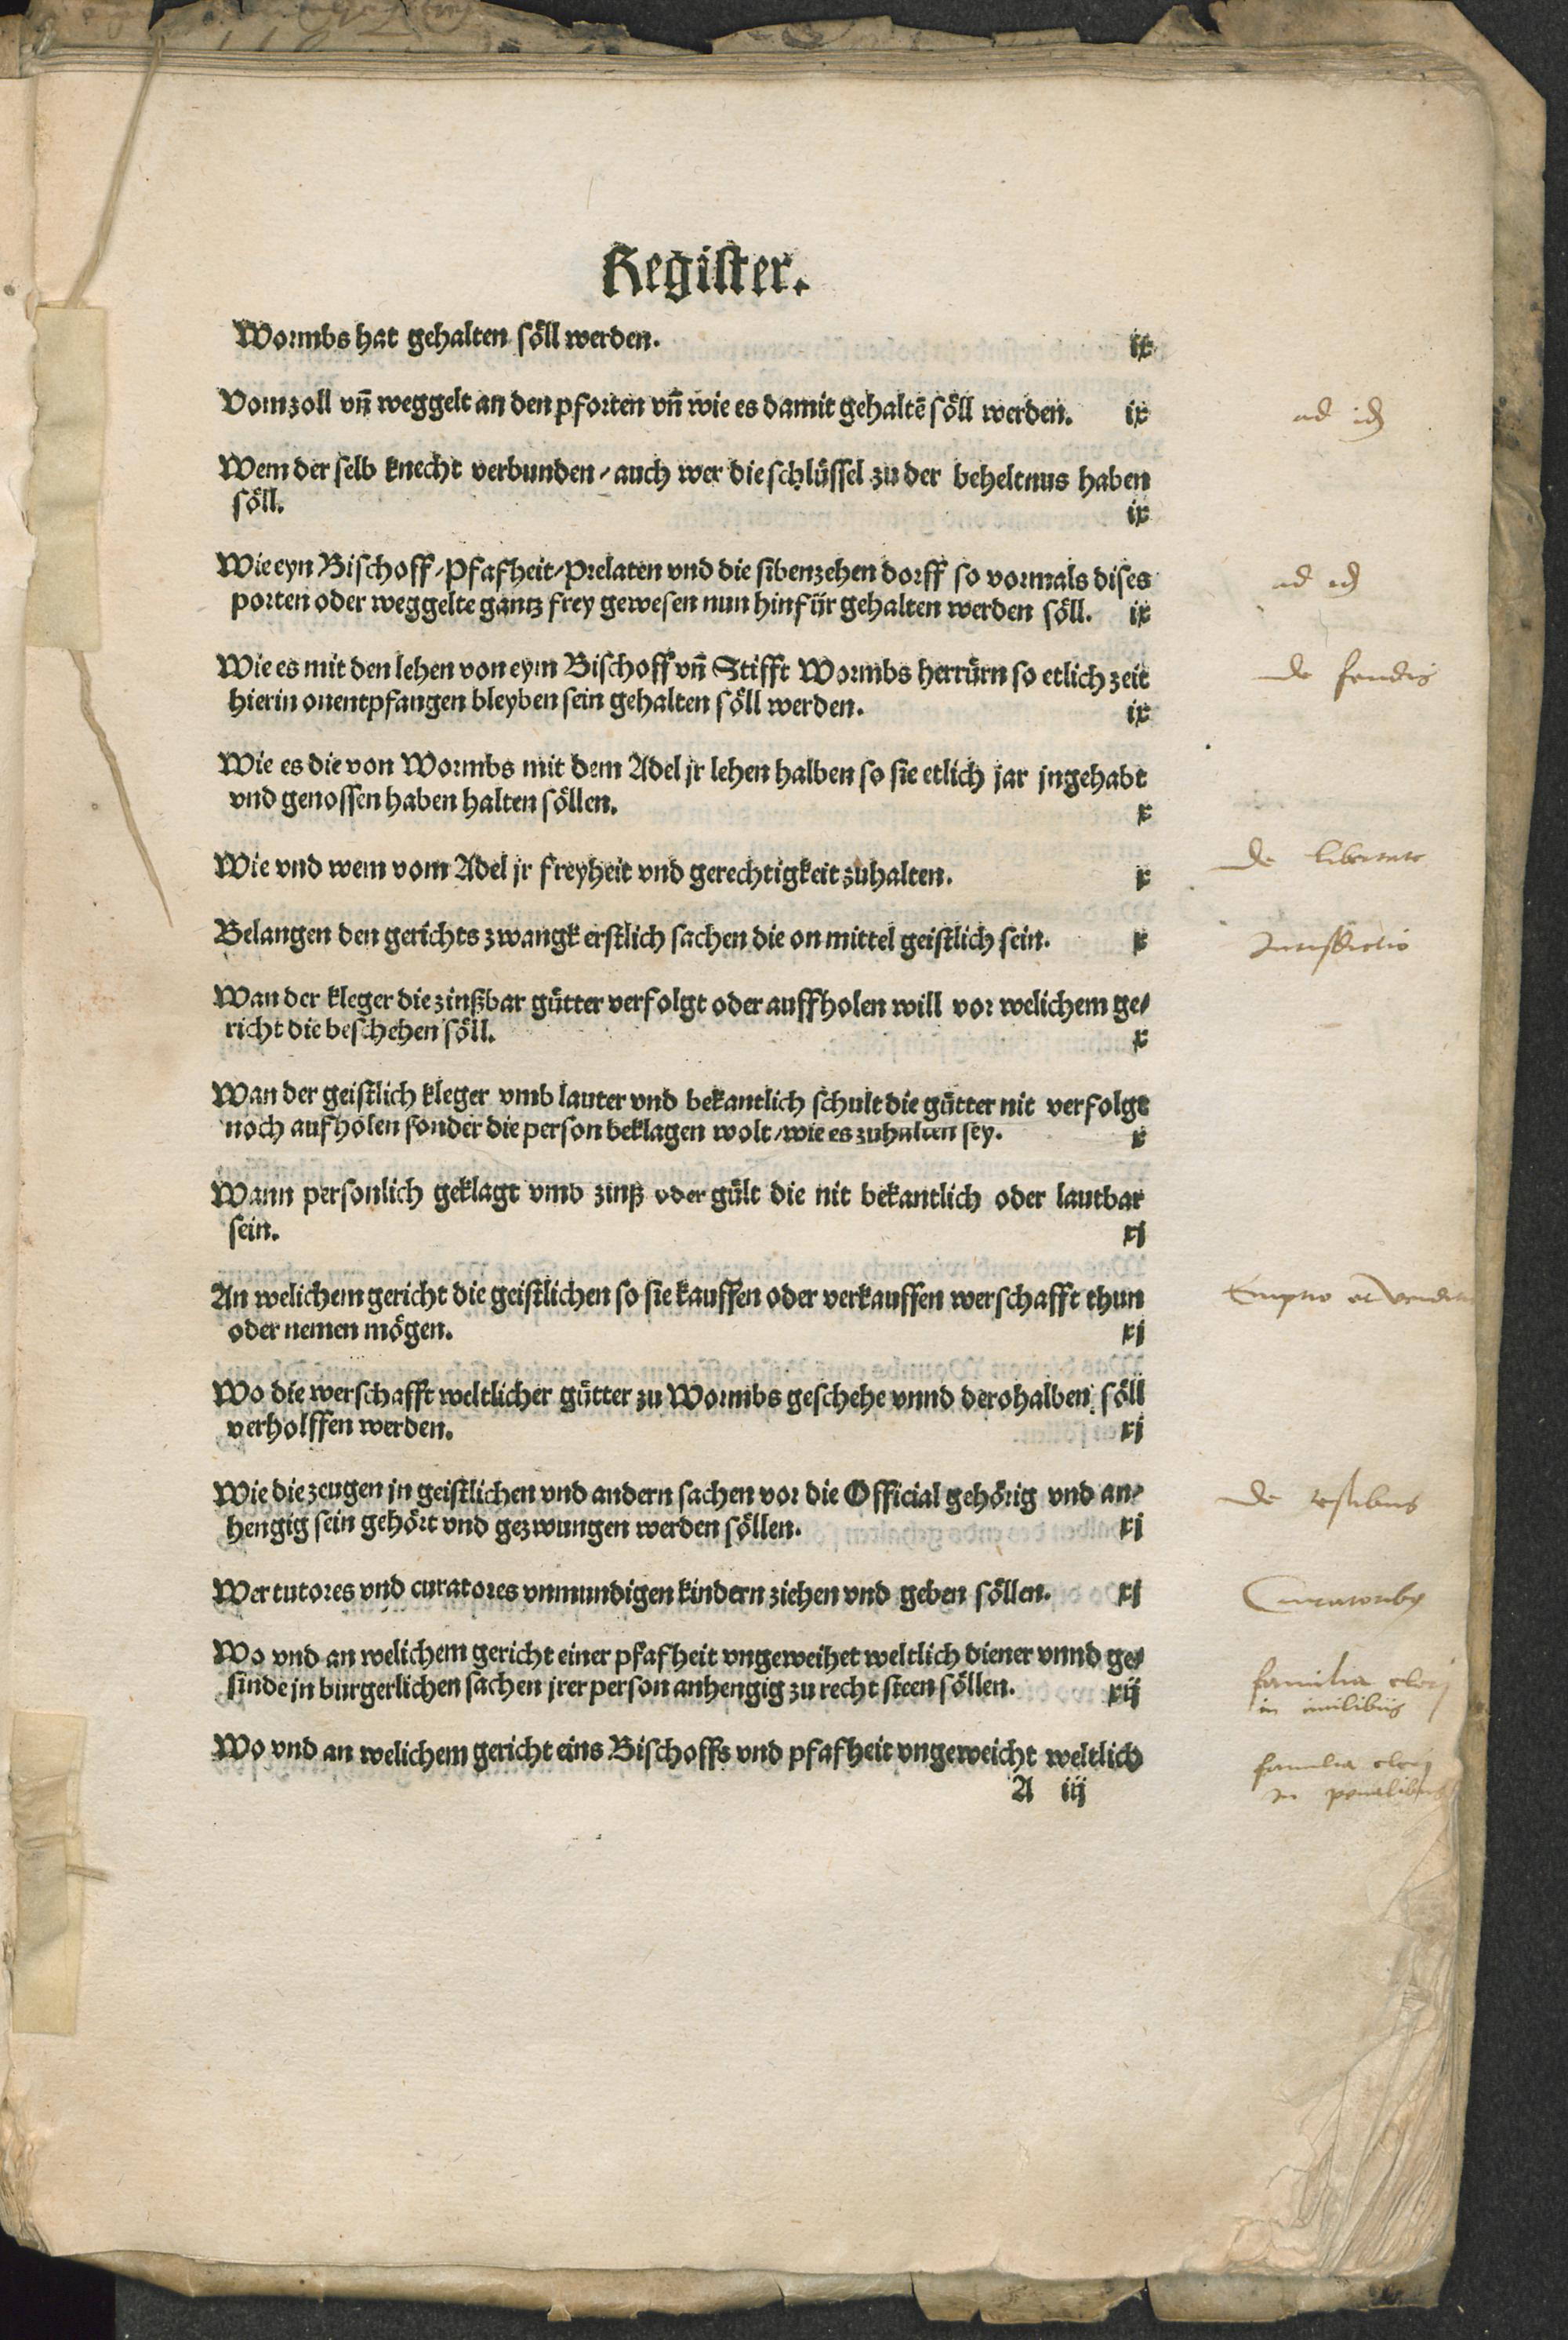 Register.
Wormbs hat gehalten söll werden. ix
Vom zoll vn̄ weggelt an den pforten vn̄ wie es damit gehaltē söll werden. ix
ad idē
Wem der selb knecht verbunden / auch wer die schlüssel zu der beheltnus haben
söll. ix
Wie eyn Bischoff / Pfafheit / Prelaten vnd die sibenzehen dorff so vormals dises
porten oder weggelte gantz frey gewesen nun hinfür gehalten werden söll. ix
ad idē
Wie es mit den lehen von eym Bischoff vn̄ Stifft Wormbs herrürn so etlich zeit
hierin onentpfangen bleyben sein gehalten söll werden. ix
de feudis
Wie es die von Wormbs mit dem Adel jr lehen halben so sie etlich jar jngehabt
vnd genossen haben halten söllen. x
Wie vnd wem vom Adel jr freyheit vnd gerechtigkeit zuhalten. x
de libertate
Belangen den gerichts zwangk erstlich sachen die on mittel geistlich sein. x
Jurisdictio
Wan der kleger die zinßbar gütter verfolgt oder auffholen will vor welichem ge⸗
richt die beschehen söll. x
Wan der geistlich kleger vmb lauter vnd bekantlich schult die gütter nit verfolgt
noch aufholen sonder die person beklagen wolt / wie es zuhalten sey. x
Wann personlich geklagt vmb zinß oder gült die nit bekantlich oder lautbar
sein. xj
An welichem gericht die geistlichen so sie kauffen oder verkauffen werschafft thun
oder nemen mögen. xj
Emptio et vendit
Wo die werschafft weltlicher gütter zu Wormbs geschehe vnnd derohalben söll
verholffen werden. xj
Wie die zeugen jn geistlichen vnd andern sachen vor die Official gehörig vnd an⸗
hengig sein gehört vnd gezwungen werden söllen. xj
de testibus
Wer tutores vnd curatores vnmundigen kindern ziehen vnd geben söllen. xj
Curatoribꝰ
Wo vnd an welichem gericht einer pfafheit vngeweihet weltlich diener vnnd ge⸗
sinde jn burgerlichen sachen jrer person anhengig zu recht steen söllen. xij
familia cleri
in ciuilibus
Wo vnd an welichem gericht eins Bischoffs vnd pfafheit vngeweicht weltlich
familia cleri
in penalibus
A iij